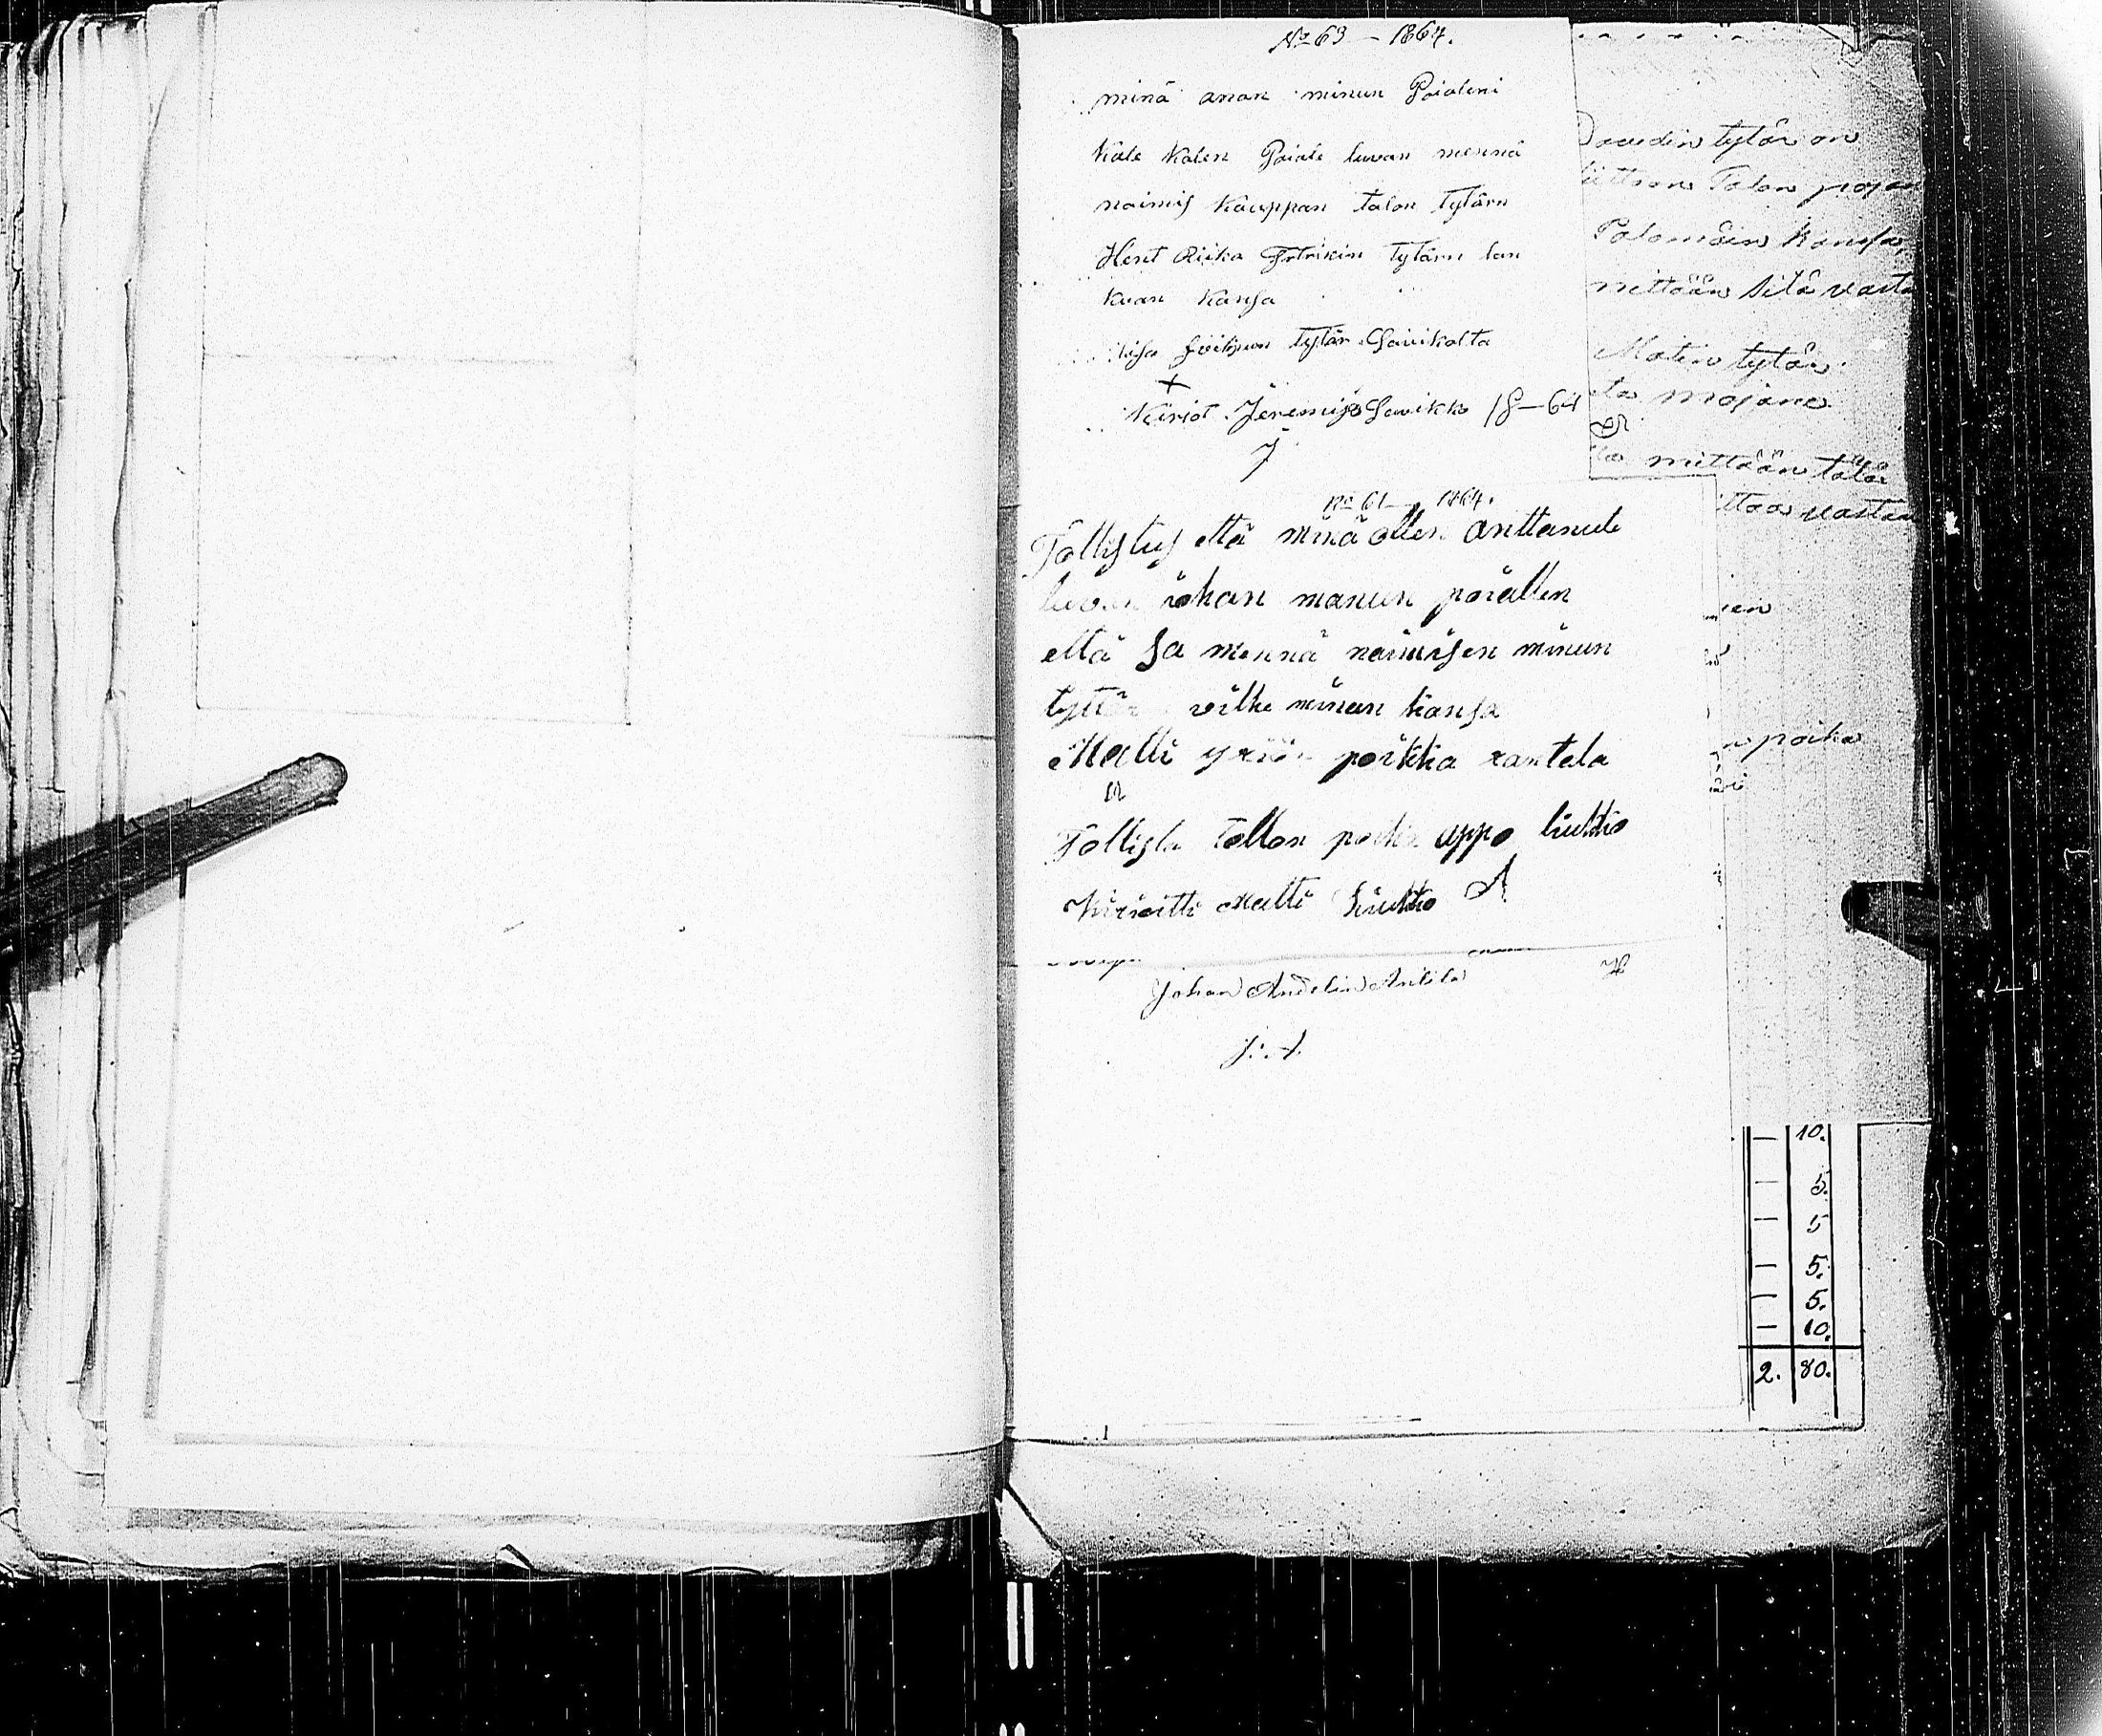 No 63 — 1864.
minä anan minun Poialeni
Kale Kalen Poiale luvan mennä
naimis Kauppan talon Tytärn
Hent Riika Fetrikin Tytärn lan
kuan Kansa
Lisa tytär Savikolta
+
Kiriot Jeremijs Savikko 18—64
J
No 61 — 1864.
Tollistus että minä ollen anttanude
luvan iohan manun poiallen
että sa mennä naimisen minun
tyttär vilhe minun kansa
Matti yriön poikka rantala
Tollista tollon poika uppo liukko
Kirioitti Matti liukko A
Johan Andelin Anttila
J. A.
Daudin tytär on
Talon pojan
Palomäin kansa,
mittään sitä vasta
Matin tytär
ta majane
mittään tätä
ttoa vastan
ien
n poika
— 10.
— 5.
— 5
— 5.
— 5.
— 10.
2. 80.